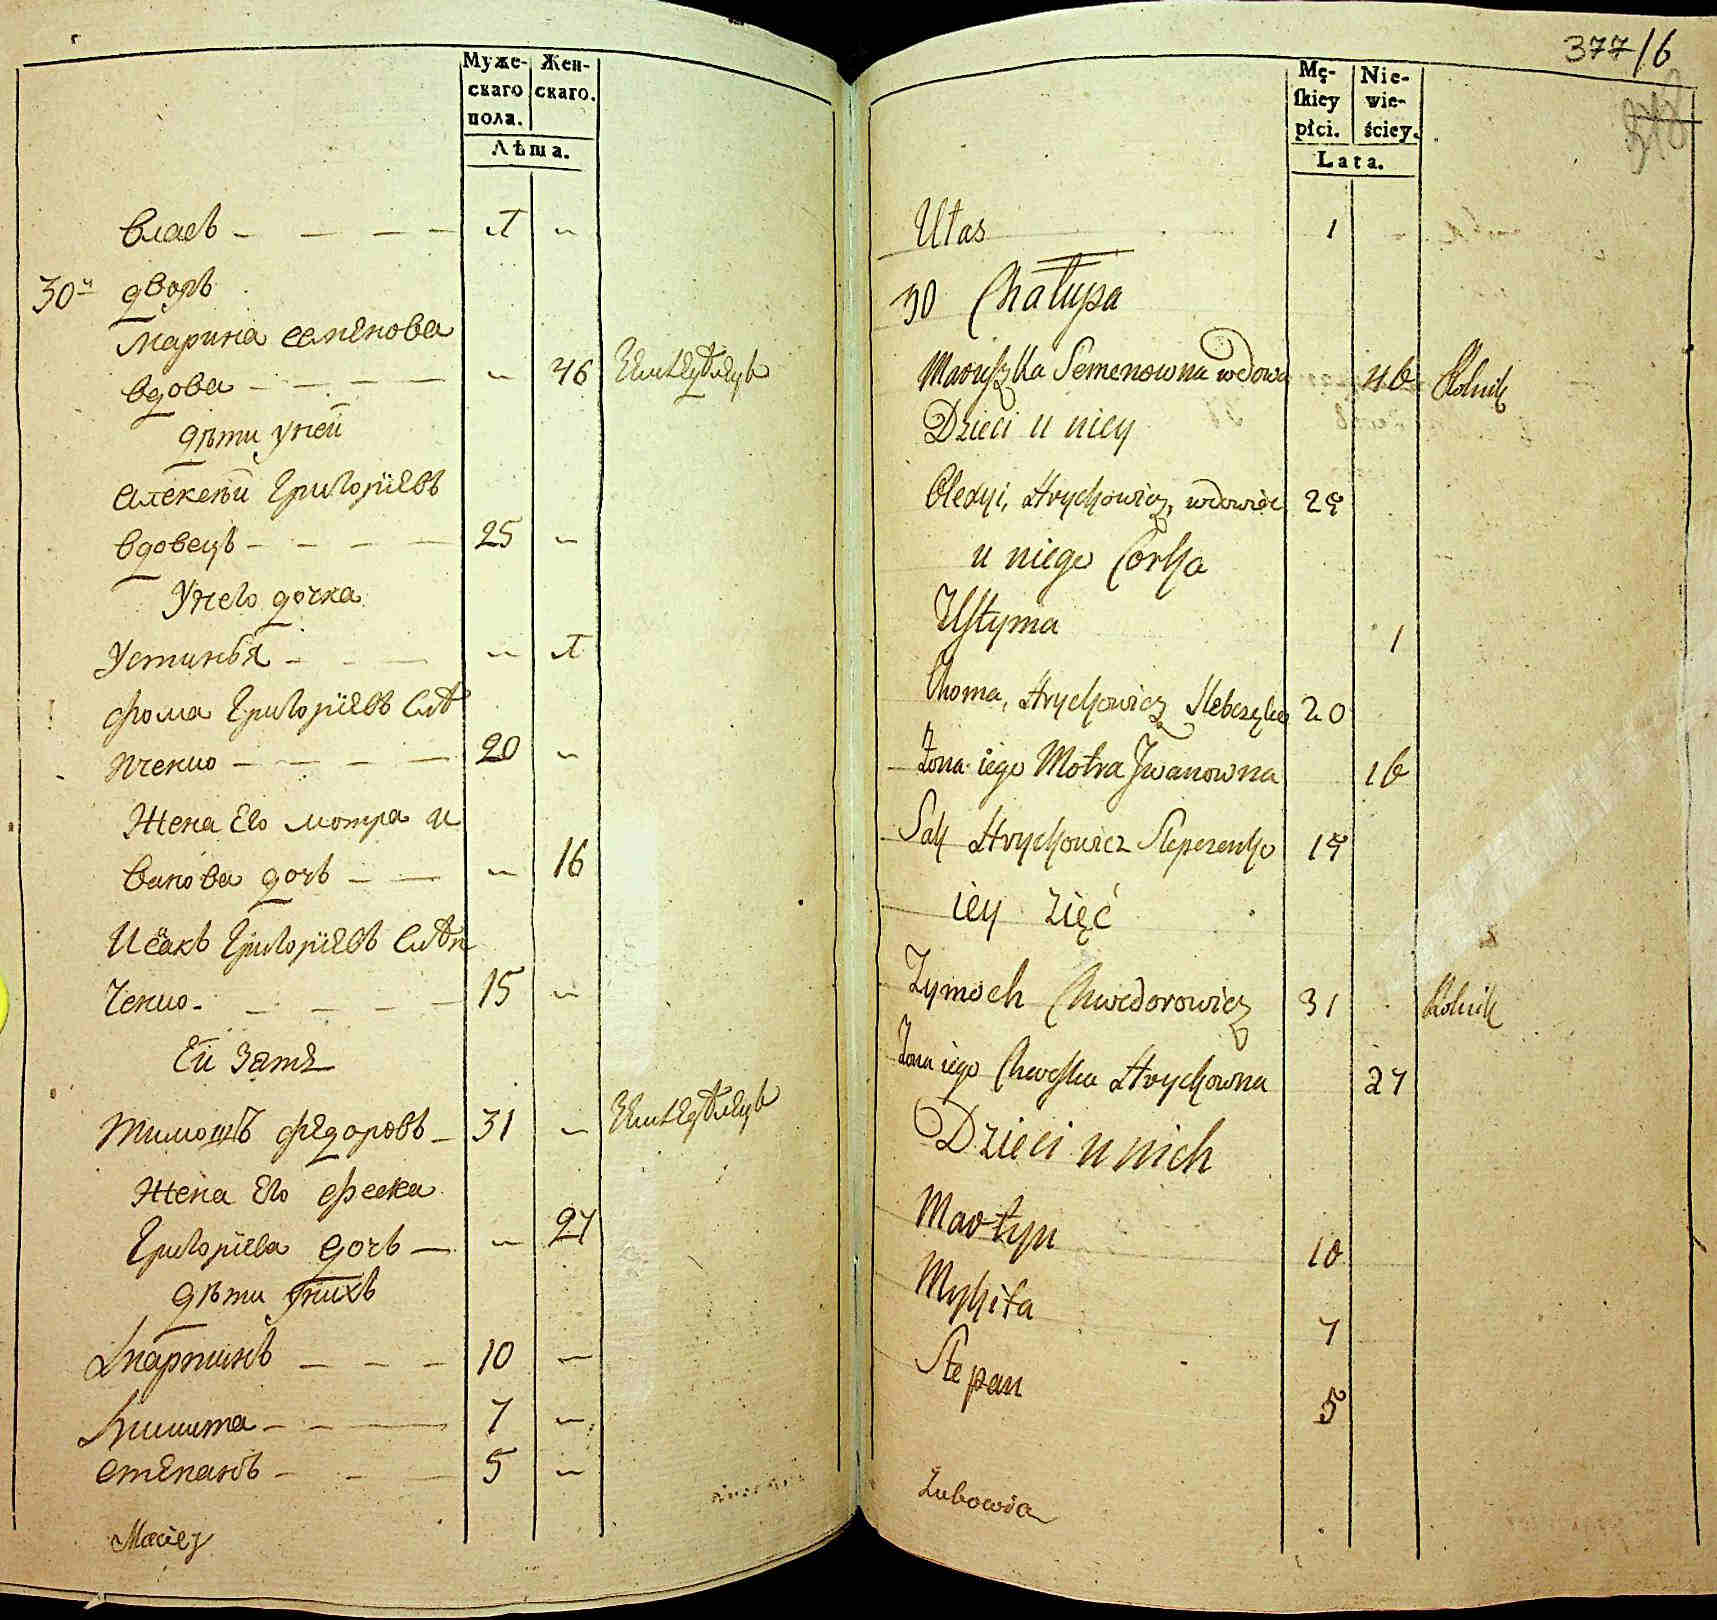 Муже-
скаго
пола.
Жен-
скаго.
Лѣта.
Власъ - - - - 1 "
30й дворъ
Марина семѣнова
вдова - - - - " 46 Земледѣлецъ
дѣти уней
Алексѣй Григорїевъ
вдовецъ - - - - 25 "
Унего дочка
Устинья - - - " 1
Фома Григорїевъ Слѣ
пченко - - - - 20 "
Жена Его мотра и
ванова дочь - - " 16
Исакъ Григорїевъ Слѣп
ченко - - - - 15 "
Ей Зять
Тимошъ Фѣдоровъ - 31 " Земледѣлецъ
Жена Его феска
Григорїева дочь - " 27
дѣти унихъ
Мартинъ - - - 10 "
Никита - - - 7 "
Степанъ - - - 5 "
Maciey
377/6
Mę-
ſkiey
płci.
Nie-
wie-
ściey.
Lata.
Ułas 1
30 Chałupa
Maruszka Semenowna wdowa 46 Rolnik
Dzieci u niey
Olexyi, Hryckowicz, wdowiec 25
u niego Corka
Ustyma 1
Choma, Hryckowicz 20
Zona iego Motra Jwanowna 16
Sak Hryckowicz 15
iey zięć
Tymoch Chwedorowicz 31 Rolnik
Zona iego Chweska Hryckowna 27
Dzieci u nich
Martyn 10
Mykita 7
Stepan 5